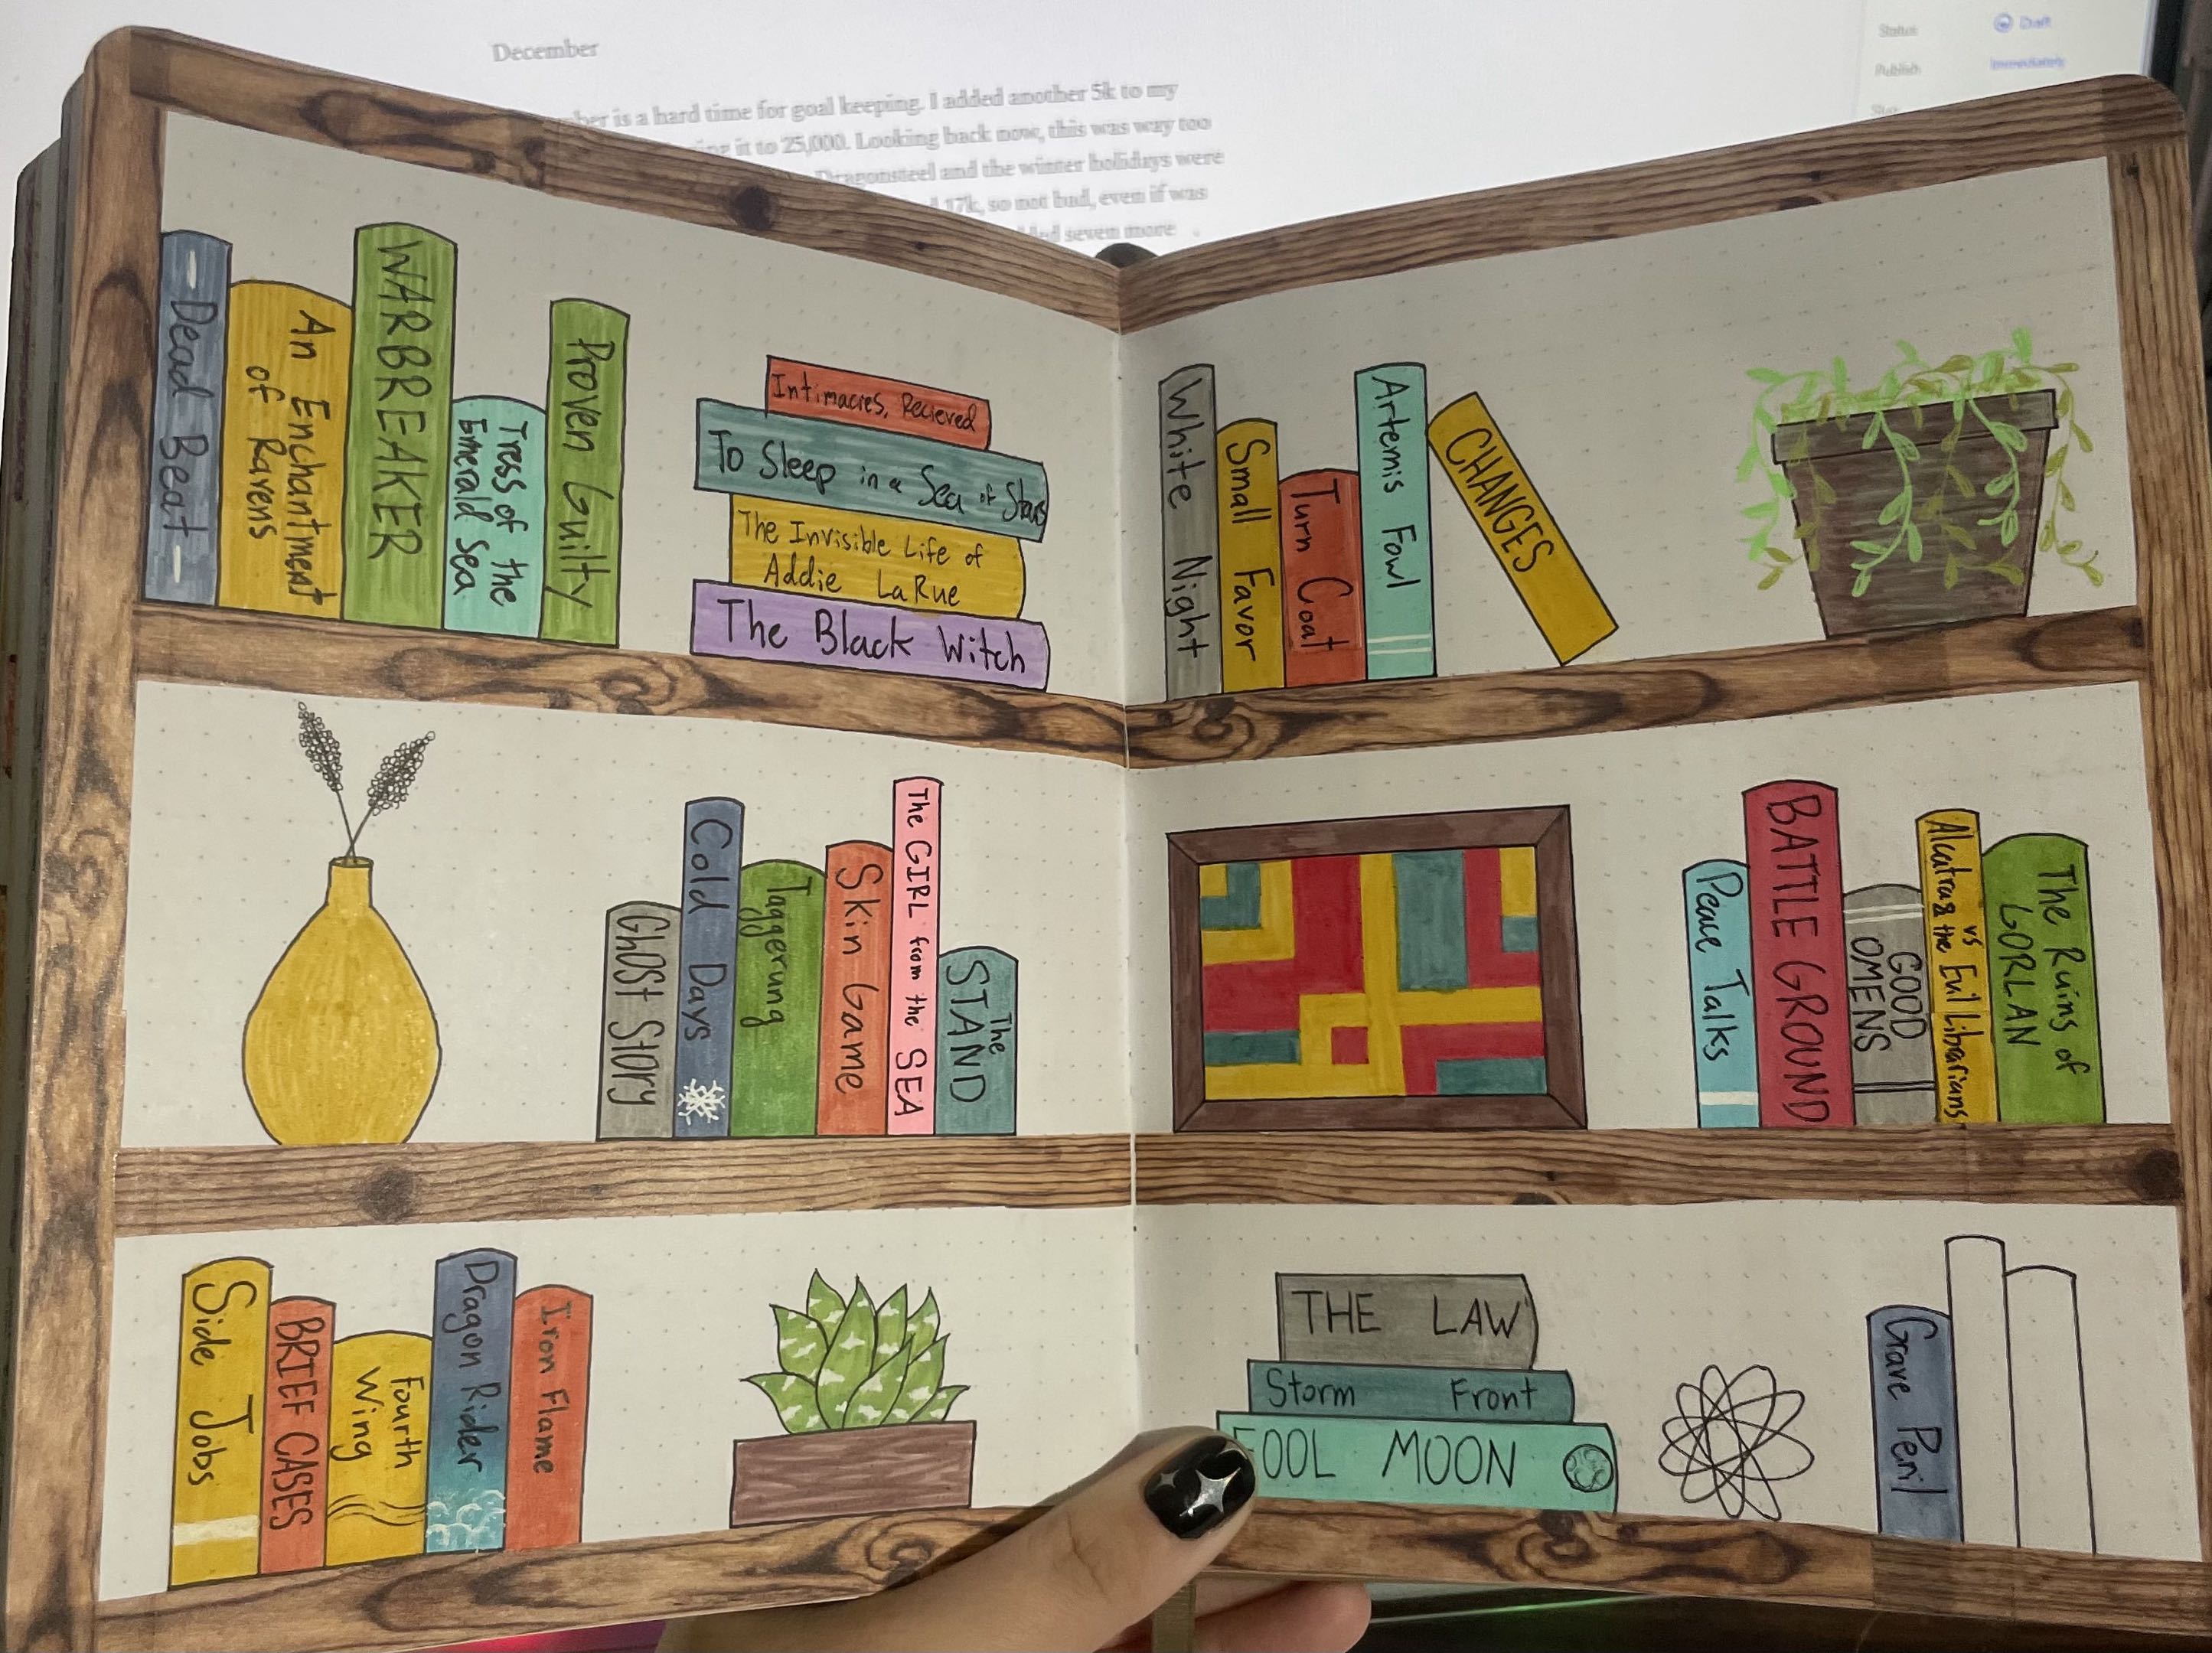 December
is a hard time for goal keeping. I added another 5k to my
it to 25,000. Looking back now, this was way too
Dragonsteel and the winter holidays were
17k, so not bad, even if was
seven more
Status
Draft
Publish
Immediately
Dead Beat
An Enchantment
of Ravens
WARBREAKER
Tress of the
Emerald Sea
Proven Guilty
Intimacies, Recieved
To Sleep in a Sea of Stars
The Invisible Life of
Addie LaRue
The Black Witch
White Night
Small Favor
Turn Coat
Artemis Fowl
CHANGES
Ghost Story
Cold Days
Taggerung
Skin Game
The GIRL from the SEA
The
STAND
Peace Talks
BATTLE GROUND
GOOD
OMENS
Alcatraz vs
the Evil Librarians
The Ruins of
GORLAN
Side Jobs
BRIEF CASES
Fourth
Wing
Dragon Rider
Iron Flame
THE LAW
Storm Front
FOOL MOON
Grave Peril